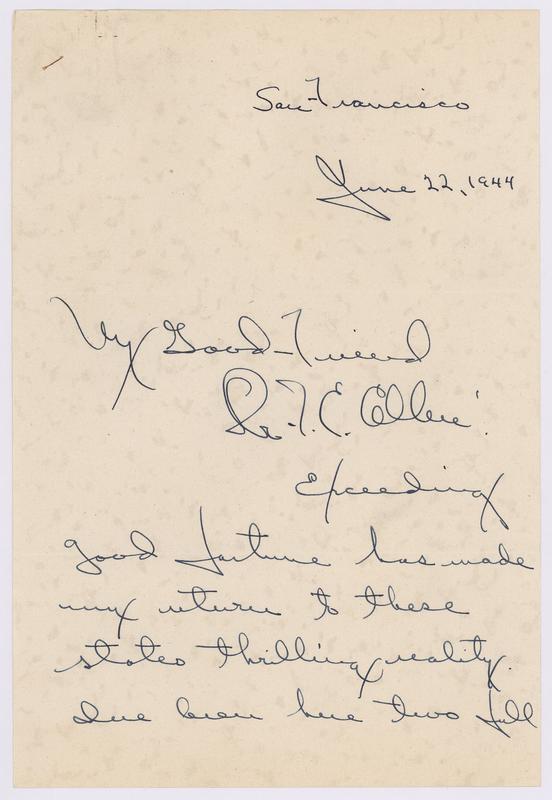 San-Francisco
June 22, 1944
My Good-Friend
Dr. T. E.
Exceeding
good fortune has made
my return to these
states thrilling reality.
I've been here two full